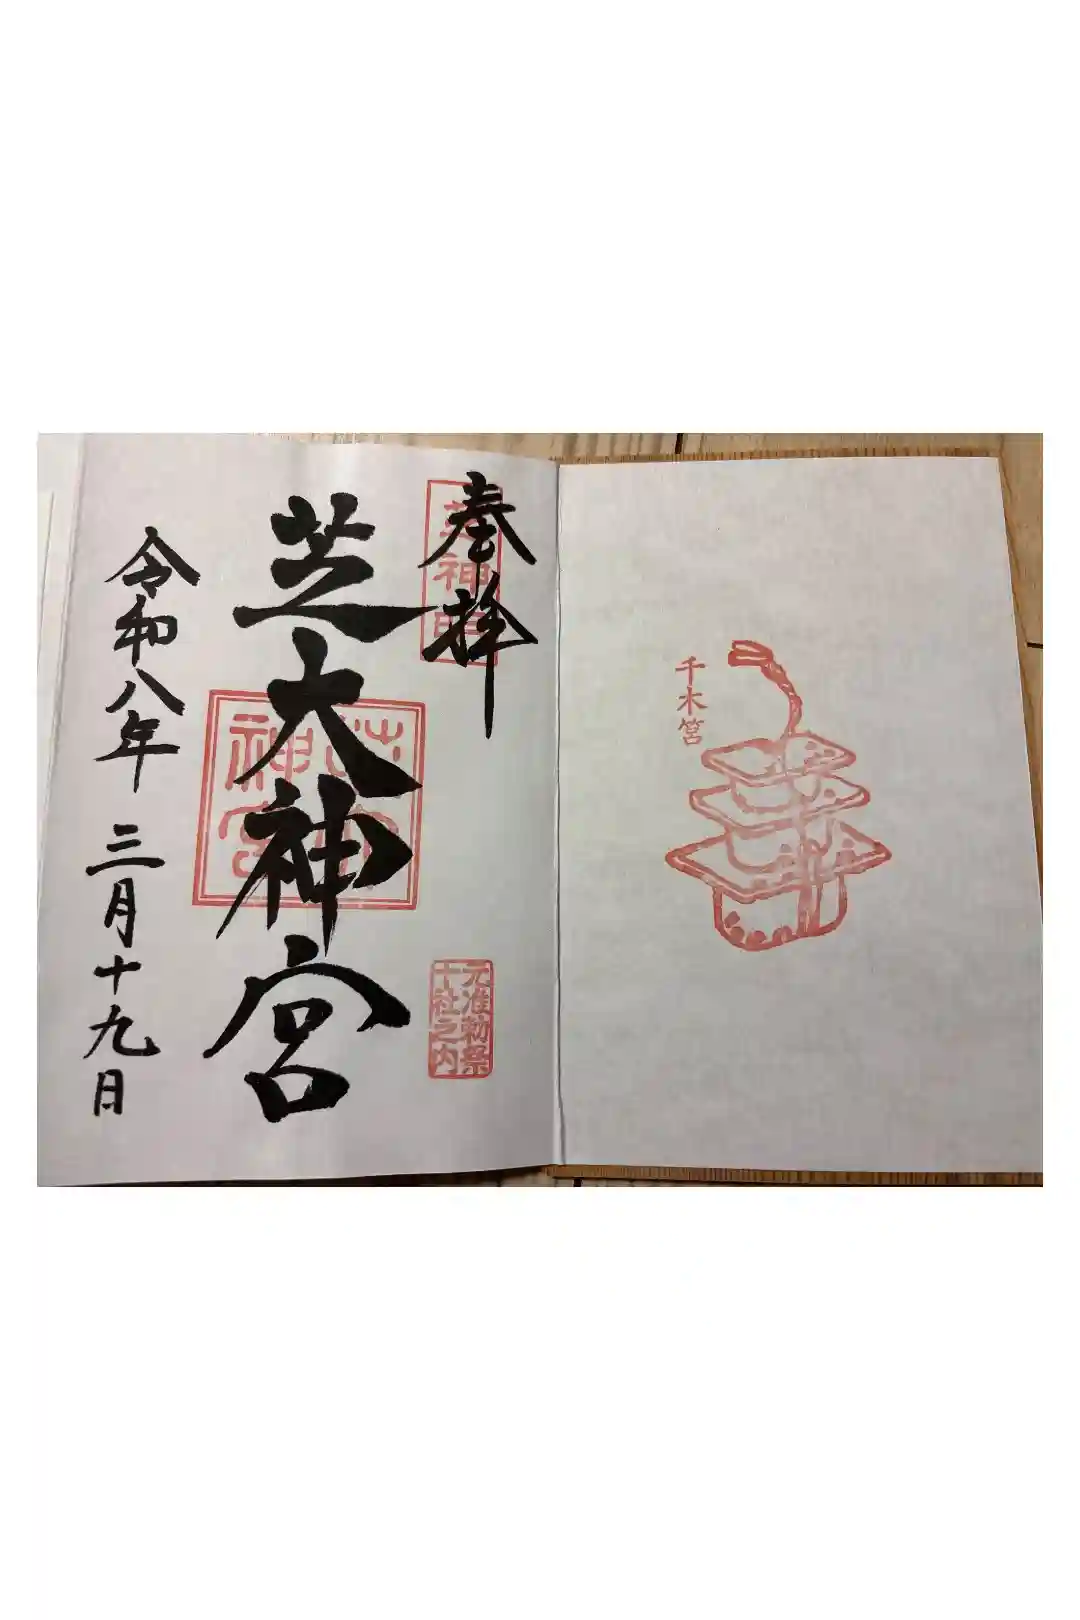 千木筥
奉拝
芝神明
元准勅祭
十社之内
芝大神宮
芝大
神宮
令和八年 三月十九日